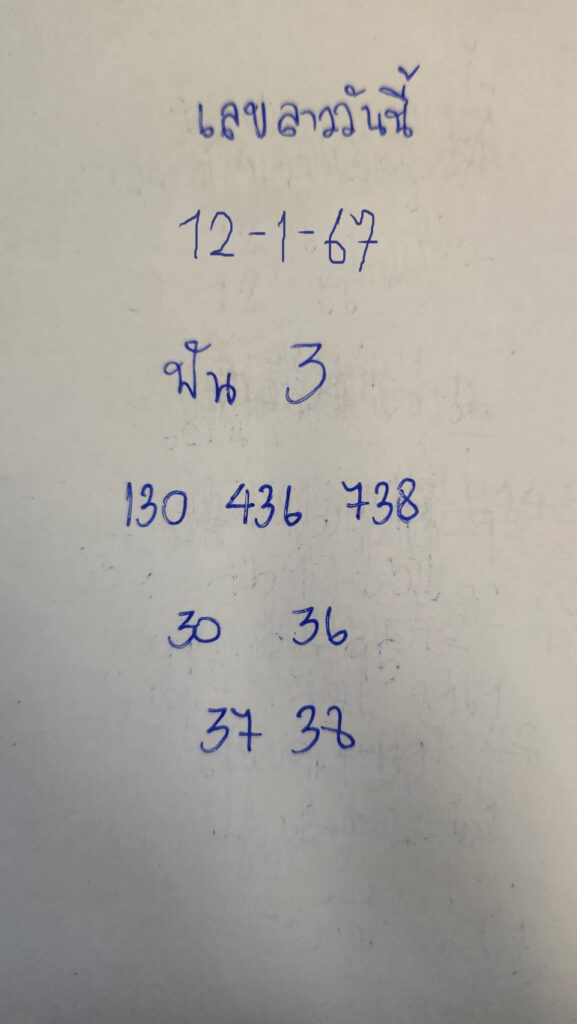 เลขลาววันนี้
12-1-67
ฟัน 3
130 436 738
30 36
37 38